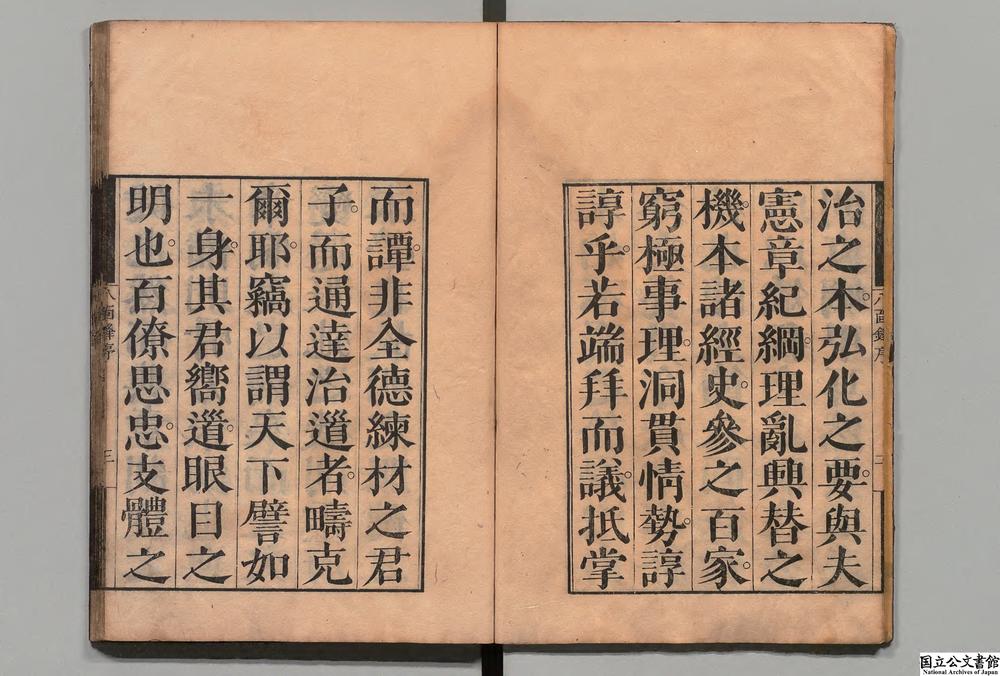 治之本。弘化之要。與夫
憲章紀綱。理亂興替之
機。本諸經史。參之百家。
窮極事理。洞貫情勢。諄
諄乎。若端拜而議。抵掌
而譚。非全德練材之君
子。而通達治道者。疇克
爾耶。竊以謂天下譬如
一身。其君嚮道。眼目之
明也。百僚思忠。支體之
八面鋒序
三
国立公文書館
National Archives of Japan